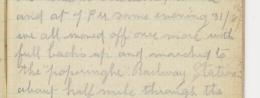 and at 7 P.M. same evening 31/8
we all moved off once more with
full packs up and marched to
the poperinghe Railway Station
about half mile through the